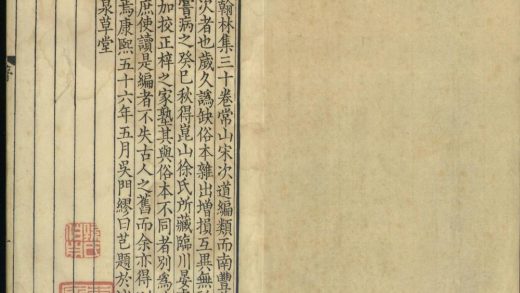 翰林集三十卷常山宋次道編類而南豐
次者也歲久譌缺俗本雜出增損互異無
嘗病之癸巳秋得崑山徐氏所藏臨川晏
加校正梓之家塾其與俗本不同者別為
庶使讀是編者不失古人之舊而余亦得
焉康熙五十六年五月吳門繆曰芑題於
泉草堂